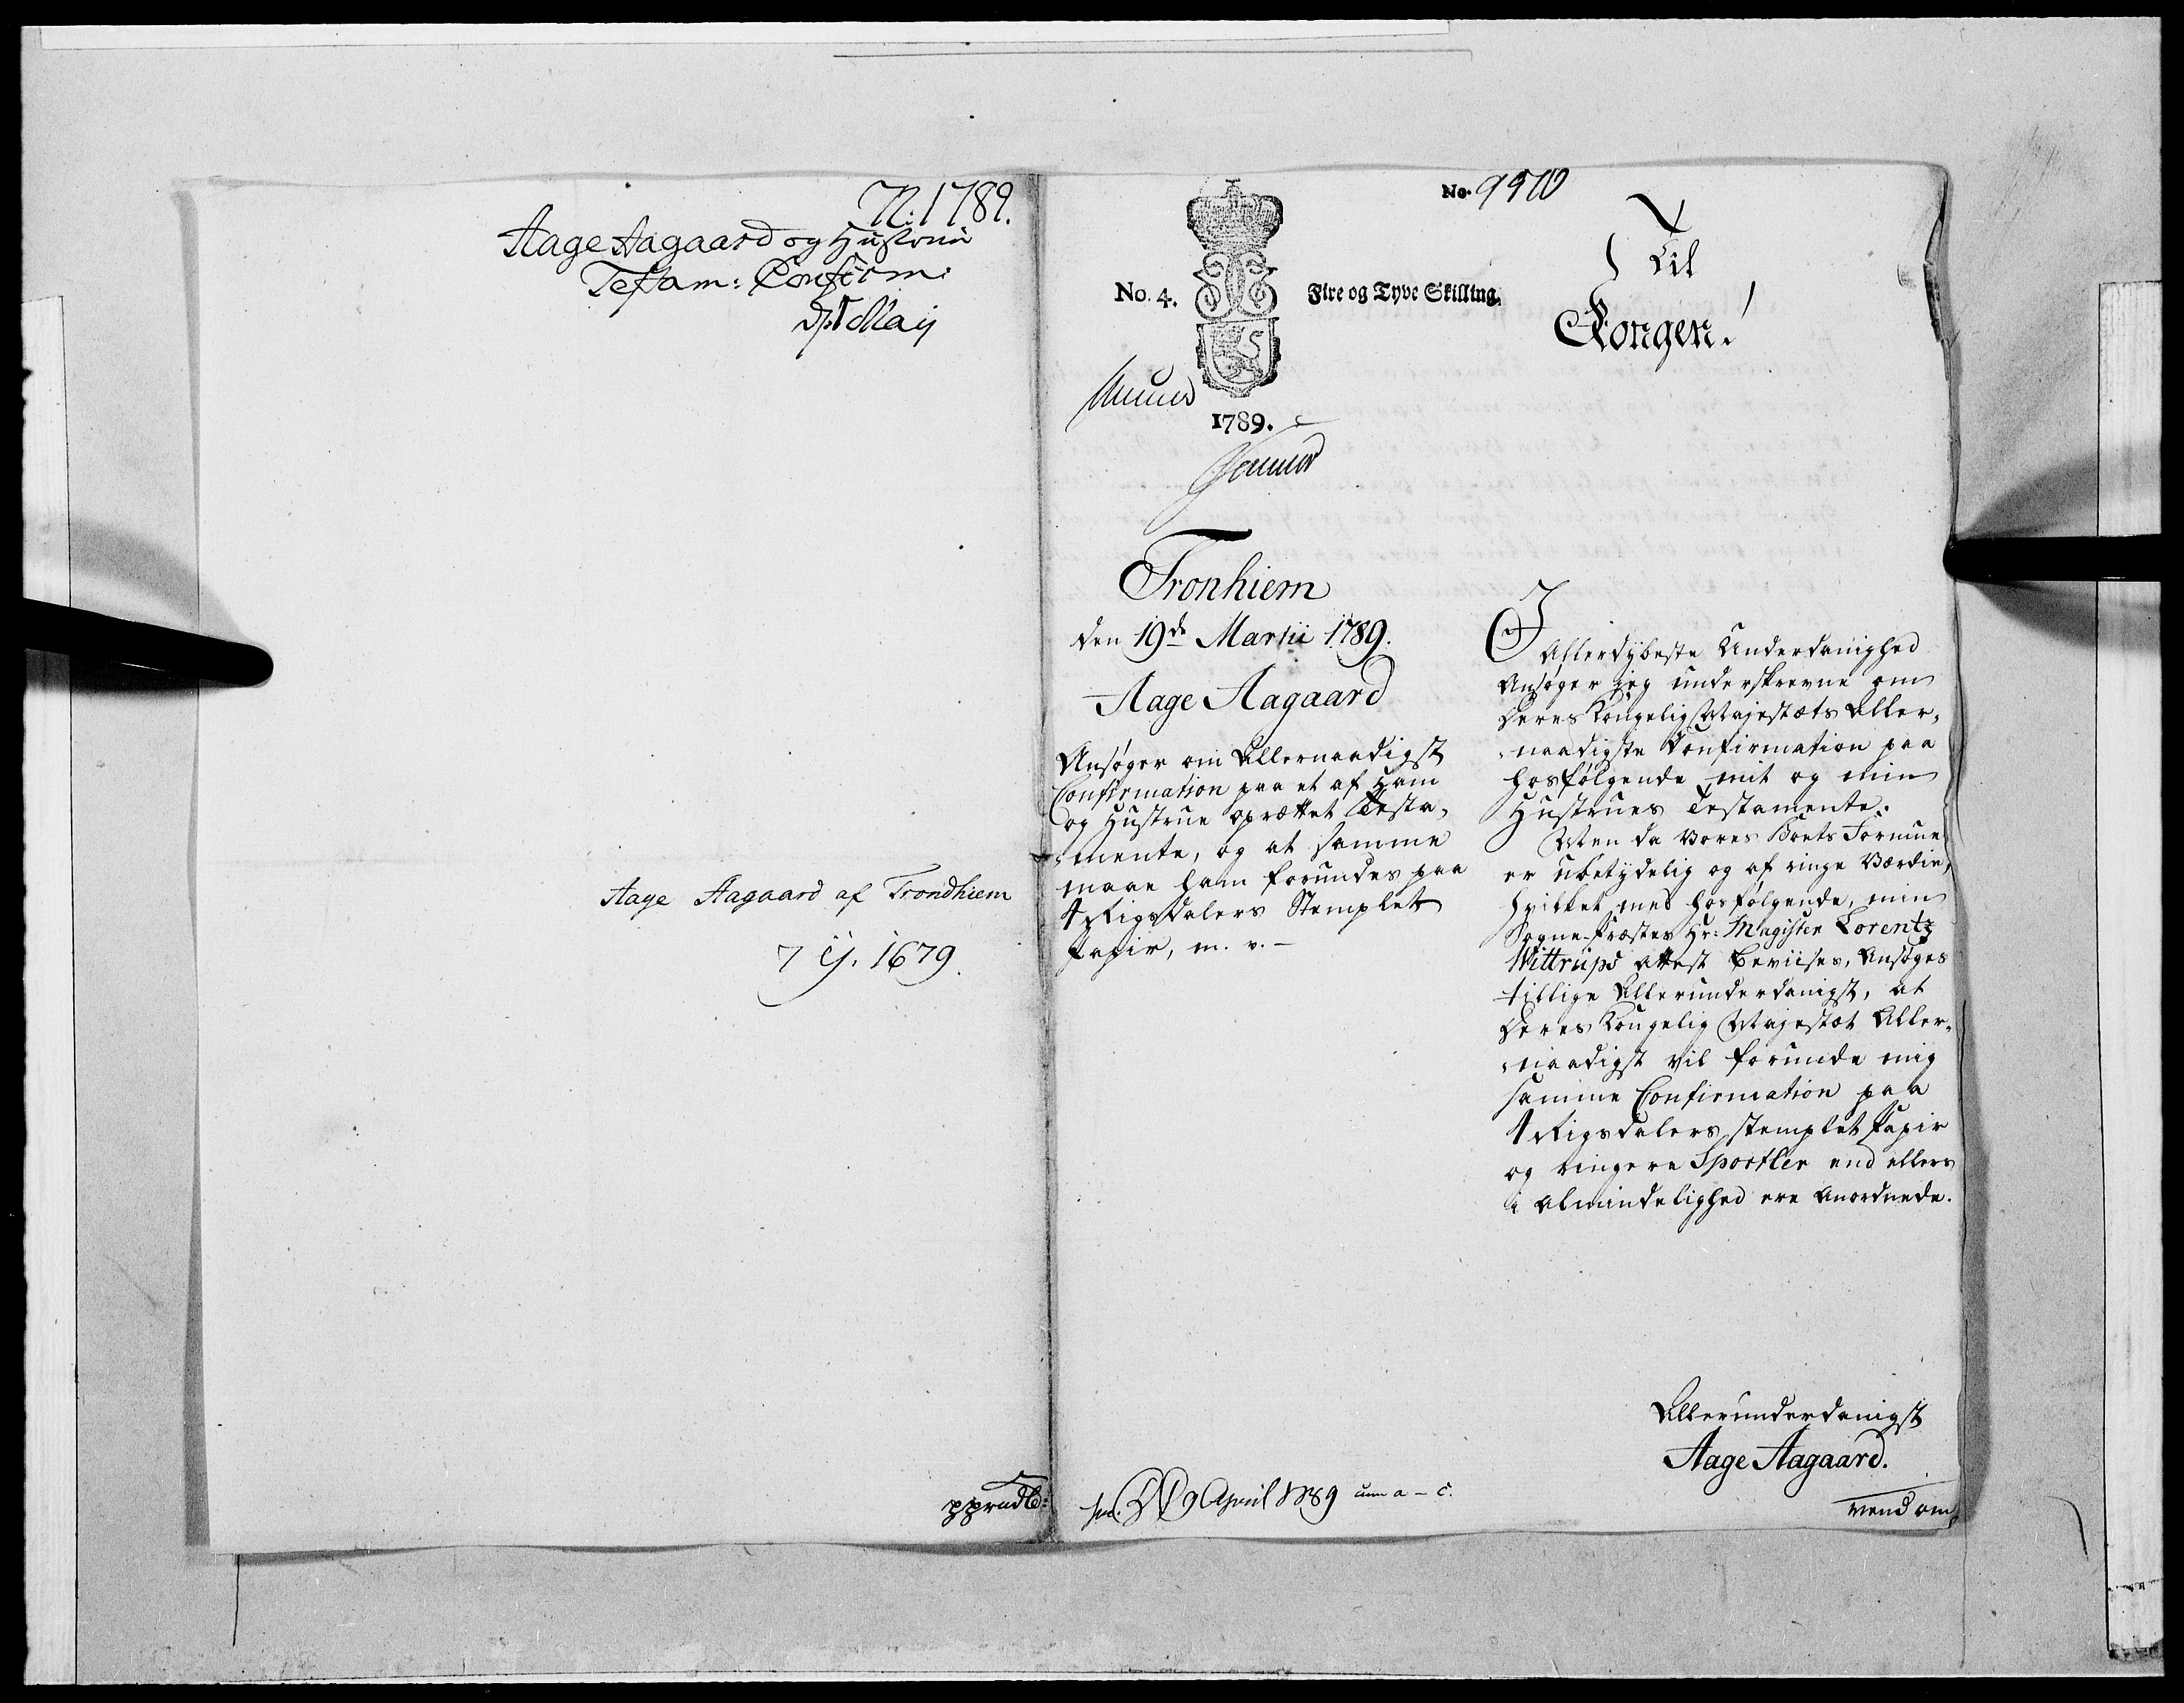 N: 1789.
Aage Aagaard og Hustrue
Testam: Confirm:
d. 1 Maij
Aage Aagaard af Trondhiem
7 Y. 1679.
No. 9970
No. 4.
Fire og Tyve Skilling.
1789.
Til
Kongen!
Tronhiem
den 19de Martii 1789.
Aage Aagaard
Ansøger om Allernaadigst
Confirmation paa et af Ham
og Hustrue oprettet Testa,
,mente, og at samme
maae ham forundes paa
4 Rigsdalers Stemplet
Papir, m. v. –
I
Allerdybeste Underdanighed
Ansøger jeg underskrevne om
Deres Kongelig Majestæts Aller,
,naadigste Confirmation paa
hosfølgende mit og min
Hustrues Testamente.
Men da Vores Boets Formue
er ubetydelig og af ringe Værdie,
hvilket med hosfølgende, min
Sogne-Præstes Hr: Magister Lorentz
Wittrups Attest beviises, Ansøges
tillige Allerunderdanigst, at
Deres Kongelig Majestæt Aller,
,naadigst vil forunde mig
samme Confirmation paa
4 Rigsdalers stemplet Papir
og ringere Sportler end ellers
i Almindelighed ere anordnede.
Allerunderdanigst
Aage Aagaard.
9 April 1789 cum a – c.
vend om